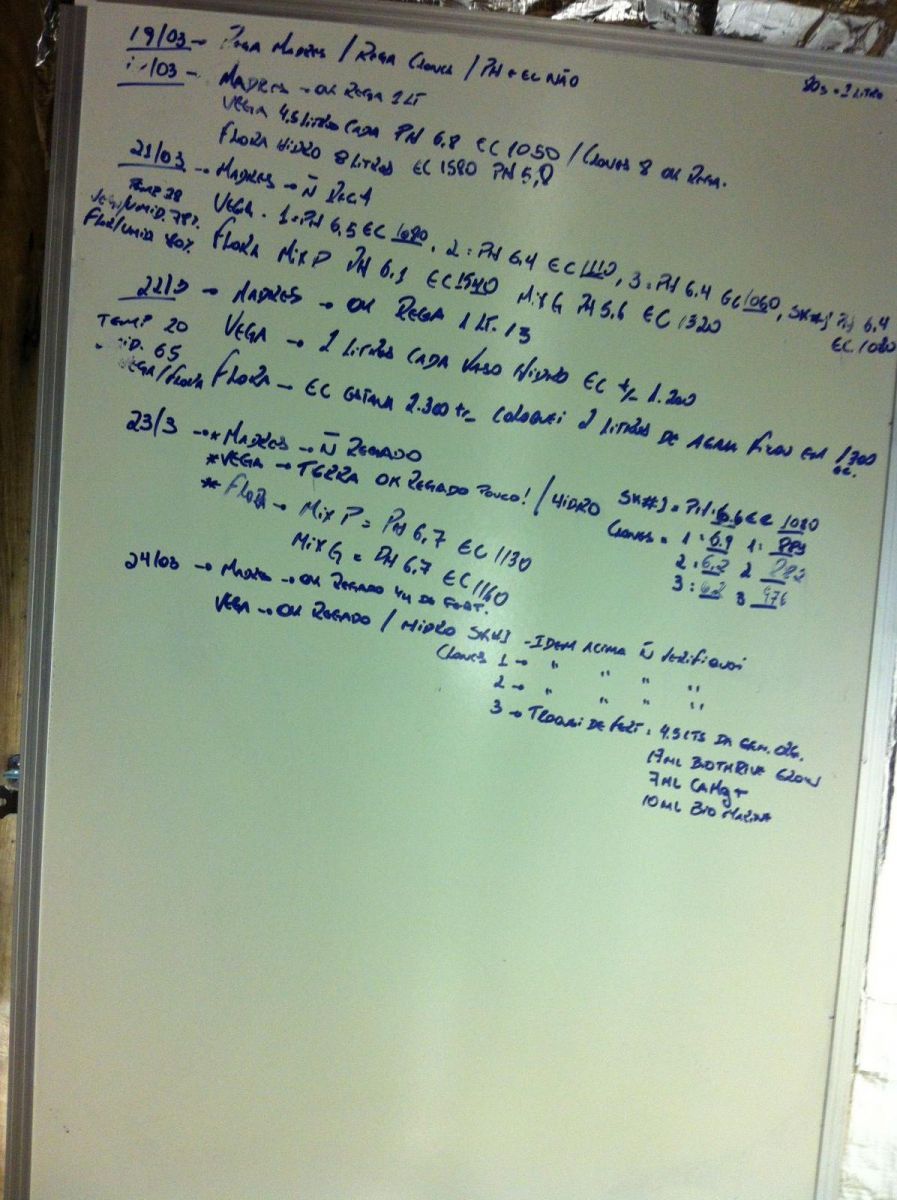 19/03 → Rega Madres / Rega Clones / PH e EC NÃO
803 = 1 LITRO
/03 - MADRES → OK REGA 1 LT
VEGA 4,5 LITROS CADA PH 6.8 EC 1050 / CLONES 8 OK REGA.
FLORA HIDRO 8 LITROS EC 1580 PH 5,8
21/03 → MADRES → Ñ REGA
TEMP 28
VEGA/UMID. 78%
FLOR/UMID 80%
VEGA - 1: PH 6.5 EC 1080, 2: PH 6.4 EC 1110, 3: PH 6.4 EC 1060, SK#1 PH 6.4 EC 1080
FLORA MIX P PH 6.1 EC 1540 MIX G PH 5.6 EC 1320
22/3 → MADRES → OK REGA 1 LT. 13
TEMP 20
65
VEGA/FLORA
VEGA → 2 LITROS CADA VASO HIDRO EC +/- 1.200
FLORA → EC ESTAVA 2.300 +- COLOQUEI 2 LITROS DE AGUA FICOU EM 1300 EC.
23/3 → * MADRES → Ñ REGADO
* VEGA → TERRA OK REGADO POUCO! / HIDRO SK#1 = PH: 6.6 EC 1080
CLONES = 1: 6.9 1: 889
2: 6.2 2 882
3: 6.2 3 976
* FLORA → MIX P = PH 6,7 EC 1130
MIX G = PH 6.7 EC 1160
24/03 → MADRES → OK REGADO 4L DO FERT.
VEGA → OK REGADO / HIDRO SK#1 - IDEM ACIMA Ñ VERIFIQUEI
CLONES 1 → " " " "
2 → " " " "
3 → TROQUEI DE FERT. 4.5 LTS DA GEN. ORG.
17ML BIOTHRIVE GROW
7ML CAMG+
10ML BIO MARINE